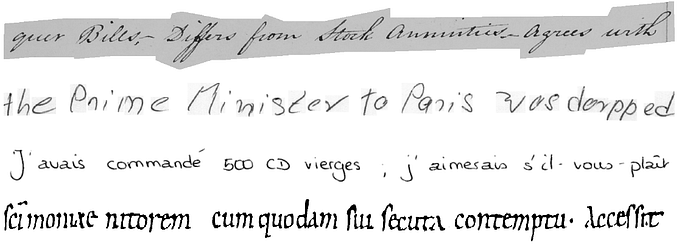 quer Bills,- Differs from Stock Annuities - Agrees with
the Prime Minister to Paris was dorpped
J'avais commandé 500 CD vierges ; j'aimerais s'il-vous-plaît
sci̅moniae nitorem cum quodam sui secuta contemptu. Accessit